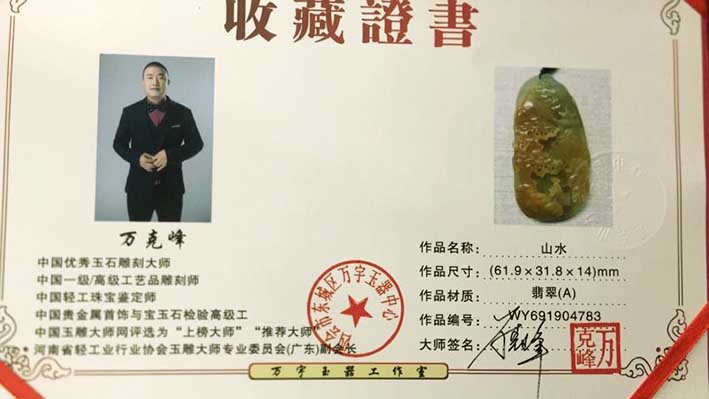 收藏證書
万克峰
中国优秀玉石雕刻大师
中国一级/高级工艺品雕刻师
中国轻工珠宝鉴定师
中国贵金属首饰与宝玉石检验高级工
中国玉雕大师网评选为“上榜大师” “推荐大师”
河南省轻工业行业协会玉雕大师专业委员会(广东)副会长
作品名称: 山水
作品尺寸: (61.9×31.8×14)mm
作品材质: 翡翠(A)
作品编号: WY691904783
大师签名: 万克峰
万克峰
市东城区万宇玉器中心
万宇玉器工作室